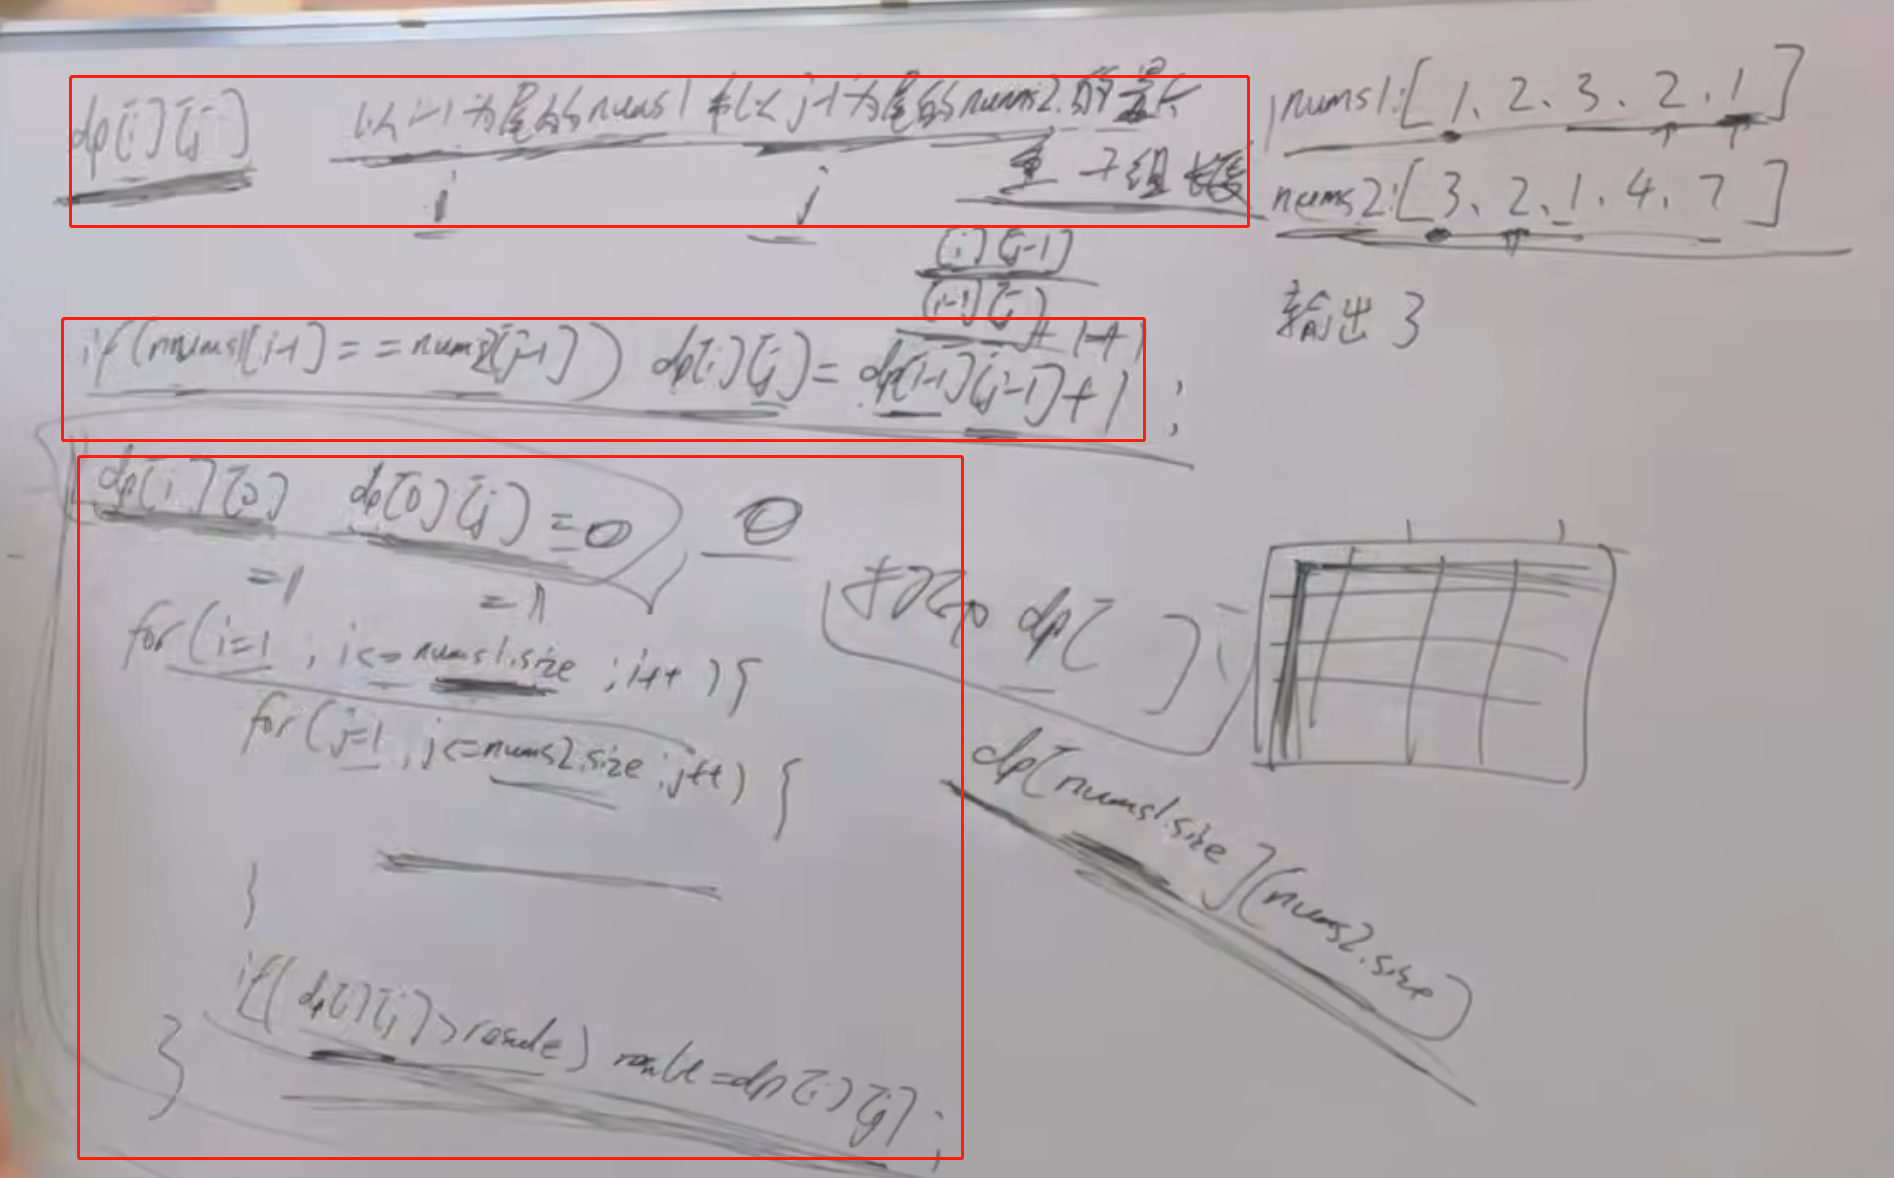 dp[i][j] 以i-1为尾的nums1和以j-1为尾的nums2的最长
重子组长度
i j
nums1:[1、2、3、2、1]
nums2:[3、2、1、4、7]
输出3
[i][j-1]
[i-1][j]+1+1
if(nums1[i-1]==nums2[j-1]) dp[i][j]=dp[i-1][j-1]+1;
dp[i][0] dp[0][j]=0, 0
=1 =1
for(i=1;i<=nums1.size;i++){
for(j=1,j<=nums2.size;j++){
}
if(dp[i][j]>result)result=dp[i][j];
}
初始化 dp[ ]
dp[nums1.size][nums2.size]